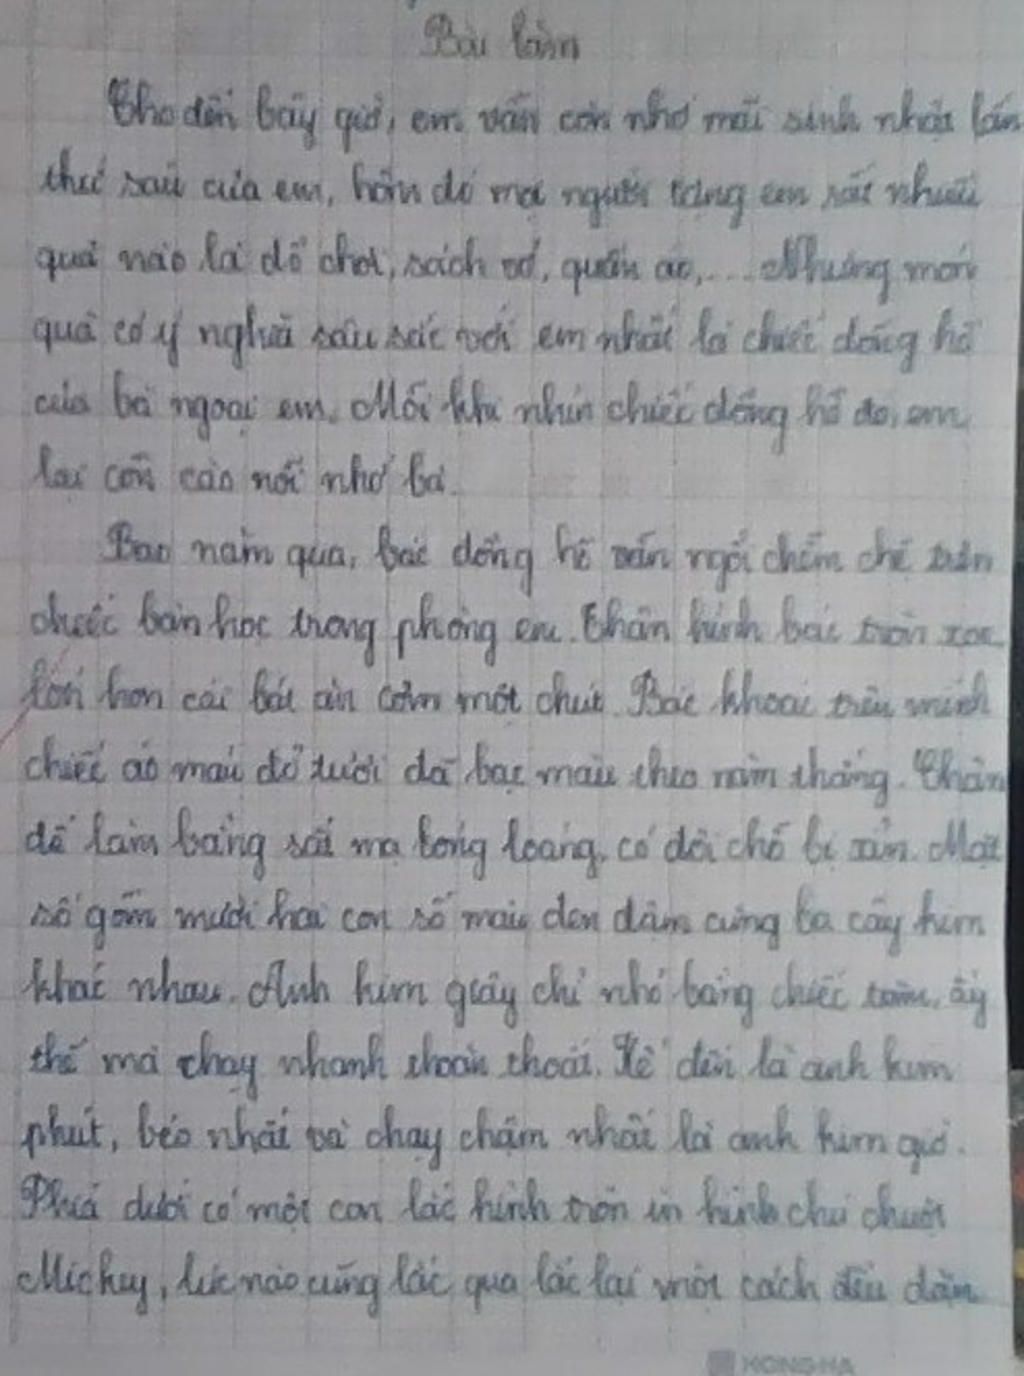 Bài làm
Cho đến bây giờ, em vẫn còn nhớ mãi sinh nhật lần
thứ sáu của em, hôm đó mọi người tặng em rất nhiều
quà nào là đồ chơi, sách vở, quần áo,... Nhưng món
quà có ý nghĩa sâu sắc với em nhất là chiếc đồng hồ
của bà ngoại em. Mỗi khi nhìn chiếc đồng hồ đó, em
lại cồn cào nỗi nhớ bà.
Bao năm qua, bác đồng hồ vẫn ngồi chễm chệ trên
chiếc bàn học trong phòng em. Thân hình bác tròn xoe
lớn hơn cái bát ăn cơm một chút. Bác khoác trên mình
chiếc áo màu đỏ tươi đã bạc màu theo năm tháng. Chân
đế làm bằng sắt mạ loáng, có đôi chỗ bị sờn. Mặt
số gồm mười hai con số màu đen đậm cùng ba cây kim
khác nhau. Anh kim giây chỉ nhỏ bằng chiếc tăm, ấy
thế mà chạy nhanh thoăn thoắt. Kế đến là anh kim
phút, béo nhất và chạy chậm nhất là anh kim giờ.
Phía dưới có một con lắc hình tròn in hình chú chuột
Mickey, lúc nào cũng lắc qua lắc lại một cách đều đặn
HONG HA